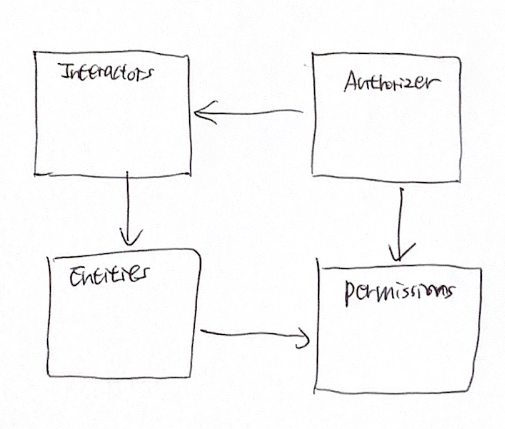 Interactors
Authorizer
Entities
Permissions